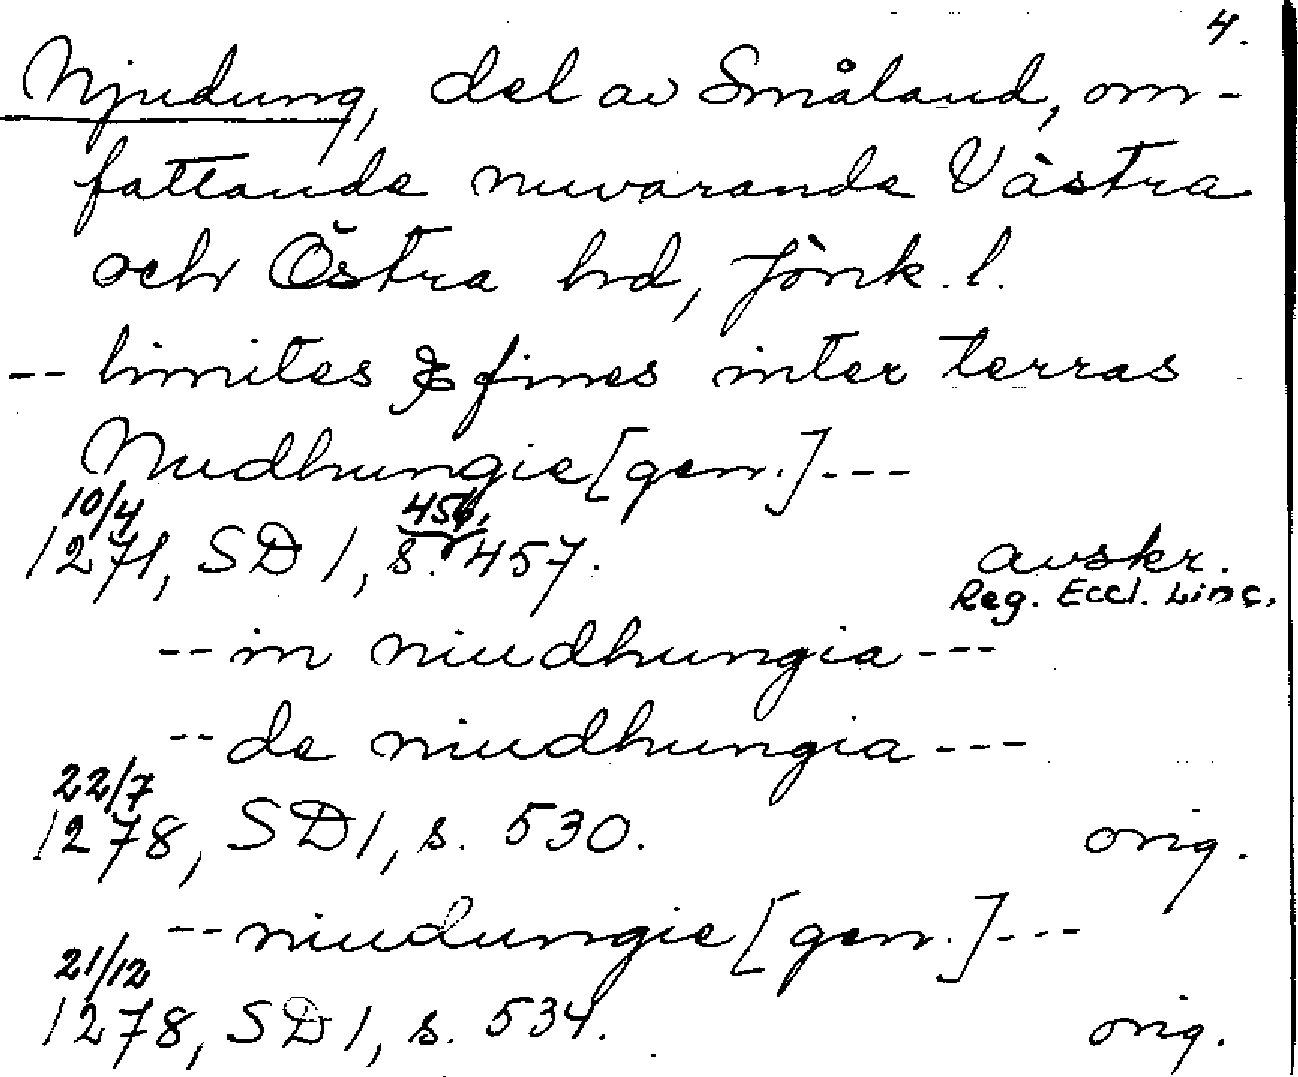 4.
Njudung, del av Småland, om-
fattande nuvarande Västra
och Östra hd, Jönk. l.
-- limites & fines inter terras
Nudhungie [gen.] ---
10/4 456,
1271, SD 1, s. 457. avskr.
Reg. Eccl. Linc.
-- in niudhungia ---
-- de niudhungia ---
22/7
1278, SD 1, s. 530. orig.
-- niudungie [gen.] ---
21/12
1278, SD 1, s. 534. orig.